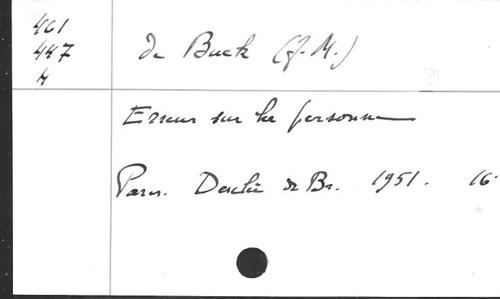 461
447
4
de Buck (J.M.)
Erreur sur la personne
Paris. Desclée de Br. 1951. 16°